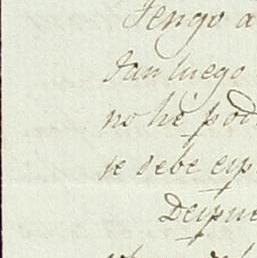 Tengo a
Tan luego
no hè pod
se debe esp
Despue